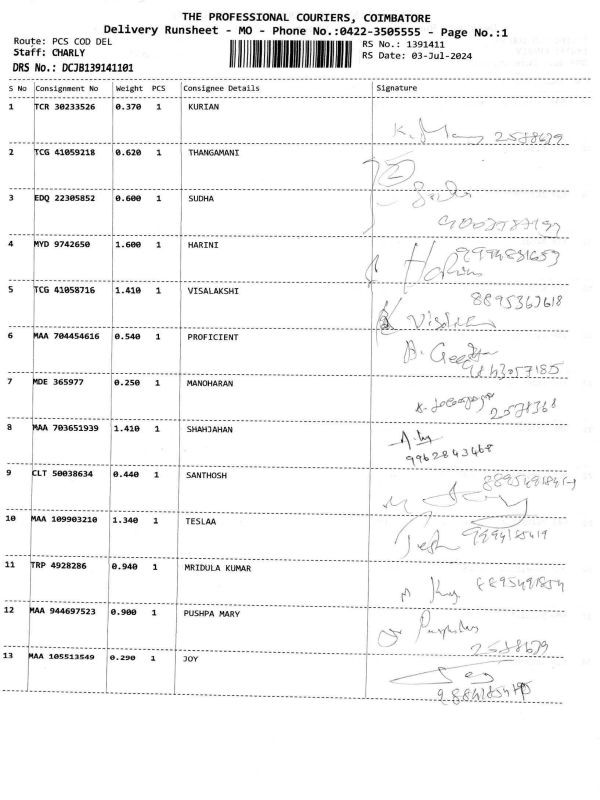 THE PROFESSIONAL COURIERS, COIMBATORE
Delivery Runsheet - MO - Phone No.:0422-3505555 - Page No.:1
Route: PCS COD DEL
RS No.: 1391411
Staff: CHARLY
RS Date: 03-Jul-2024
DRS No.: DCJB139141101
S No Consignment No Weight PCS Consignee Details Signature
1 TCR 30233526 0.370 1 KURIAN
2578679
2 TCG 41059218 0.620 1 THANGAMANI
3 EDQ 22305852 0.600 1 SUDHA
4 MYD 9742650 1.600 1 HARINI
9994831653
5 TCG 41058716 1.410 1 VISALAKSHI
8895363618
6 MAA 704454616 0.540 1 PROFICIENT
7 MDE 365977 0.250 1 MANOHARAN
2578368
8 MAA 703651939 1.410 1 SHAHJAHAN
9962843468
9 CLT 50038634 0.440 1 SANTHOSH
10 MAA 109903210 1.340 1 TESLAA
9994185419
11 TRP 4928286 0.940 1 MRIDULA KUMAR
8895491854
12 MAA 944697523 0.900 1 PUSHPA MARY
2578679
13 MAA 105513549 0.290 1 JOY